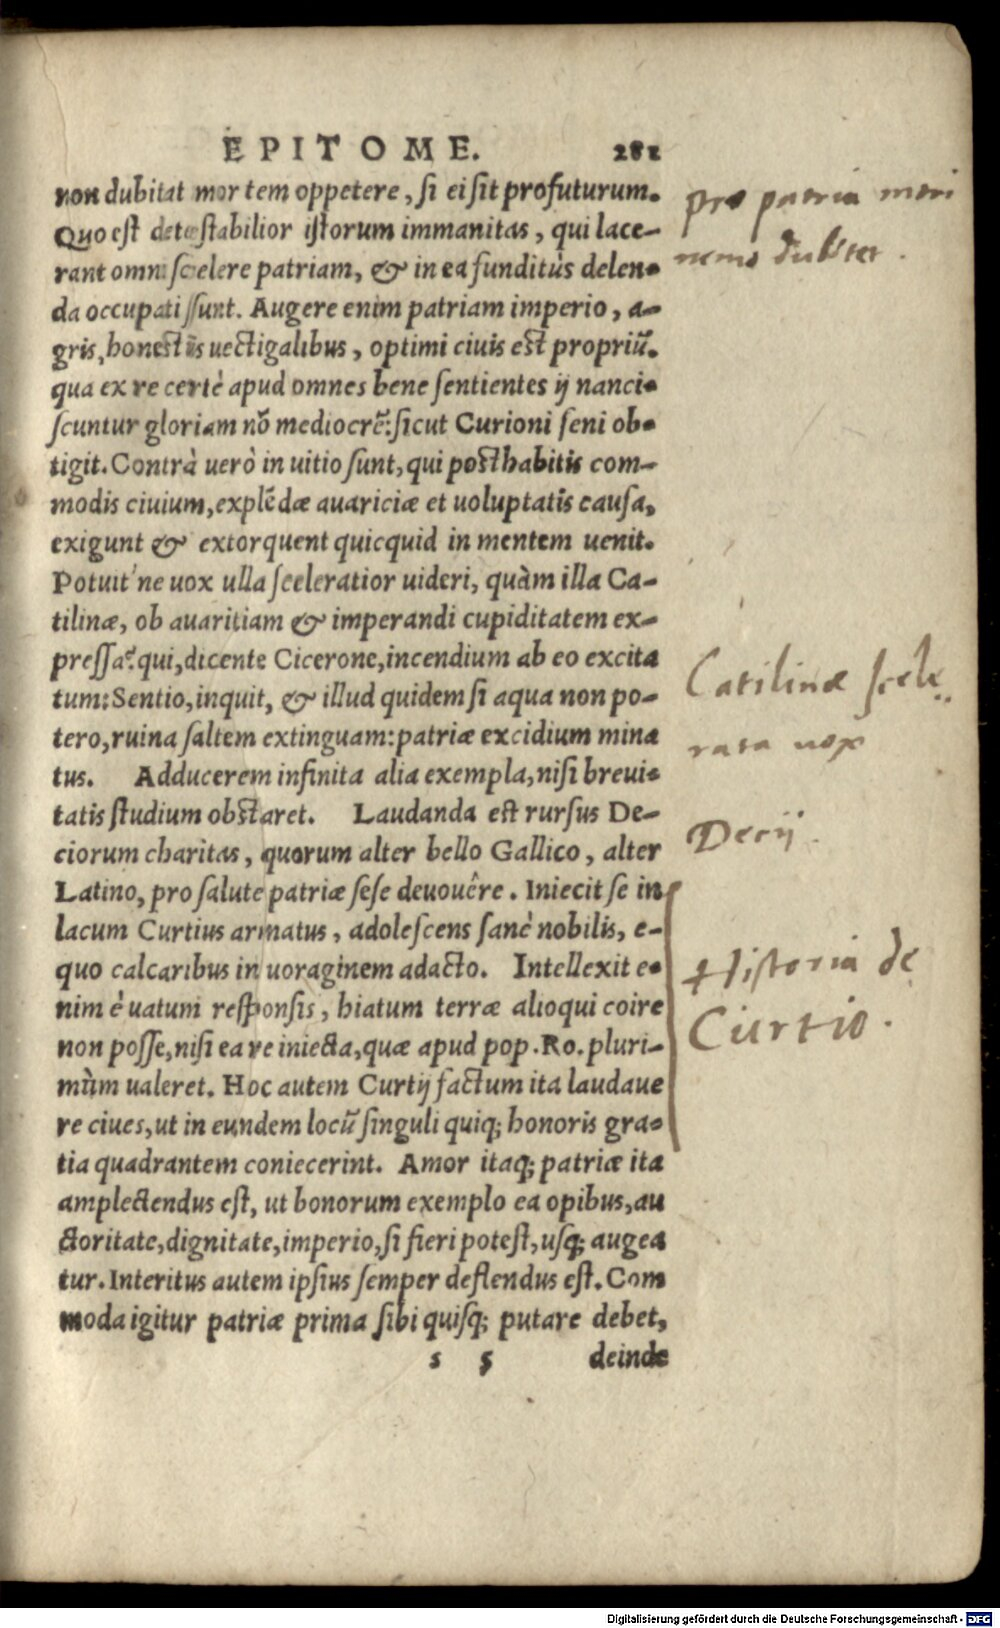 EPITOME. 281
non dubitat mortem oppetere, si ei sit profuturum.
Quo est detestabilior istorum immanitas, qui lace-
rant omni scelere patriam, & in ea funditùs delen-
da occupati sunt. Augere enim patriam imperio, a-
gris, honestis uectigalibus, optimi ciuis est propriũ.
qua ex re certè apud omnes bene sentientes ij nanci-
scuntur gloriam nõ mediocrẽ: sicut Curioni seni ob-
tigit. Contrà uerò in uitio sunt, qui posthabitis com-
modis ciuium, explẽdæ auariciæ et uoluptatis causa,
exigunt & extorquent quicquid in mentem uenit.
Potuit'ne uox ulla sceleratior uideri, quàm illa Ca-
tilinæ, ob auaritiam & imperandi cupiditatem ex-
pressa? qui, dicente Cicerone, incendium ab eo excita
tum: Sentio, inquit, & illud quidem si aqua non po-
tero, ruina saltem extinguam: patriæ excidium mina
tus. Adducerem infinita alia exempla, nisi breui-
tatis studium obstaret. Laudanda est rursus De-
ciorum charitas, quorum alter bello Gallico, alter
Latino, pro salute patriæ sese deuouêre. Iniecit se in
lacum Curtius armatus, adolescens sanè nobilis, e-
quo calcaribus in uoraginem adacto. Intellexit e-
nim è uatum responsis, hiatum terræ alioqui coire
non posse, nisi ea re iniecta, quæ apud pop. Ro. pluri-
mùm ualeret. Hoc autem Curtij factum ita laudaue
re ciues, ut in eundem locũ singuli quiq; honoris gra-
tia quadrantem coniecerint. Amor itaq; patriæ ita
amplectendus est, ut bonorum exemplo ea opibus, au
ctoritate, dignitate, imperio, si fieri potest, usq; augea
tur. Interitus autem ipsius semper deflendus est. Com
moda igitur patriæ prima sibi quisq; putare debet,
s 5 deinde
pro patria mori
nemo dubitet.
Catilinæ scele
rata uox
Decij.
Historia de
Curtio.
Digitalisierung gefördert durch die Deutsche Forschungsgemeinschaft - DFG